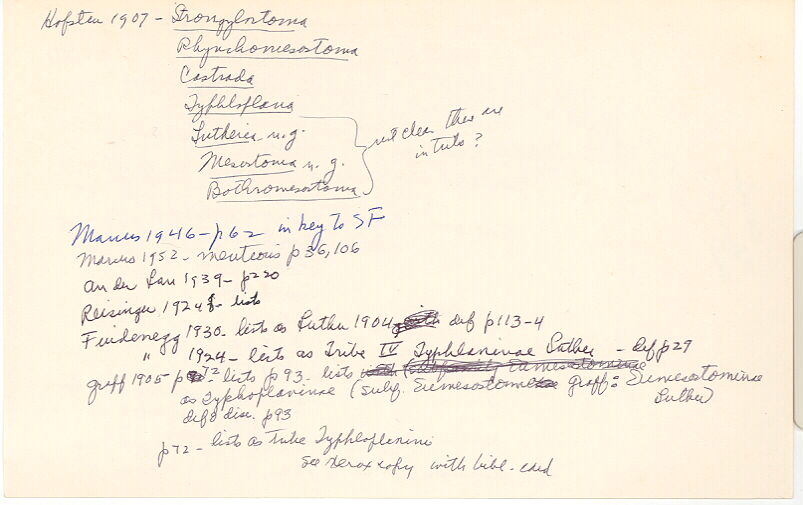 Hofsten 1907 - Strongylostoma
Rhynchomesostoma
Castrada
Typhloplana
Lutheria n.g.
Mesostoma n.g.
Bothromesostoma
not clear there are
in tribe ?
Marcus 1946 - p62 in key to SF
Marcus 1952 - mentions p 36, 106
an der Lan 1939 - p220
Reisinger 1924 - lists
Findenegg 1930 - lists as Luther 1904 def p113-4
" 1924 - lists as Tribe IV Typhlaninae Luther - def p29
Graff 1905 p72 - lists p93 - lists
as Typhoplaninae (subf. Eumesostom Graff: Eumesostominae
Luther)
def & disc. p93
p72 - lists as Tribe Typhloplinini
See xerox copy with bibl. card